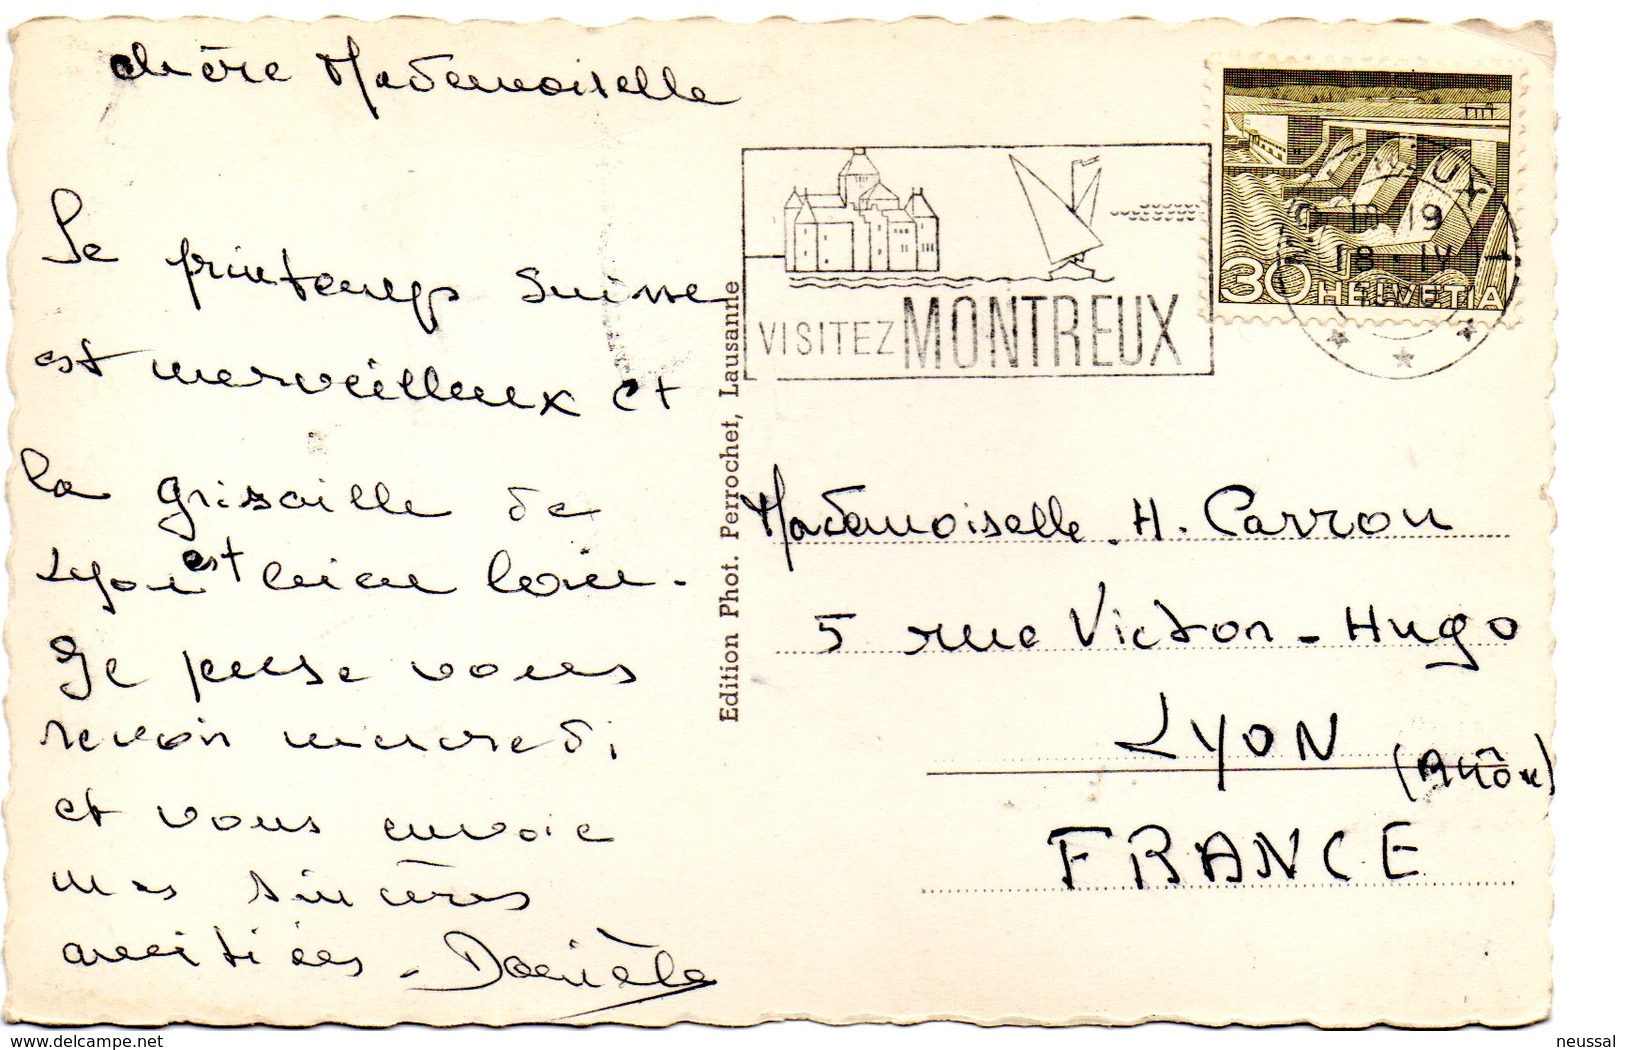 chère Mademoiselle
Le printemps suisse
est merveilleux et
la grisaille de
Lyon est bien loin.
Je pense vous
revoir mercredi
et vous envoie
mes sincères
amitiés - Danièle
Edition Phot. Perrochet, Lausanne
VISITEZ MONTREUX
30 HELVETIA
19
18 · IV
Mademoiselle H. Carron
5 rue Victor-Hugo
LYON (Rhône)
FRANCE
www.delcampe.net
neussal